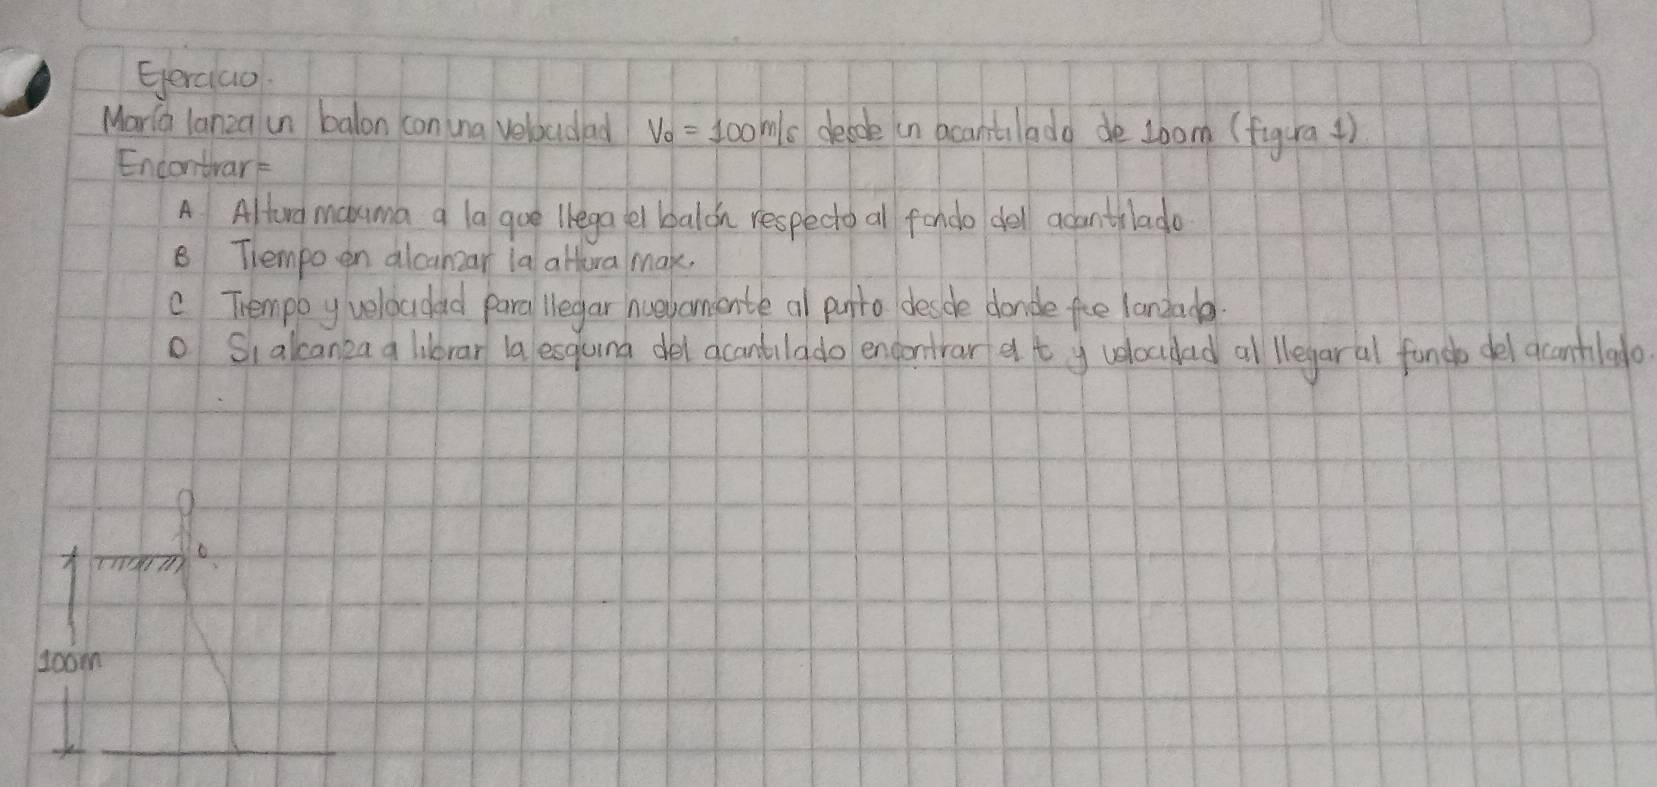 Ejercicio.
María lanza un balon con una velocidad Vo = 100m/s desde un acantilado de 100m (figura 1).
Encontrar=
A Altura maxima a la que llega el balón respecto al fondo del acantilado.
B Tiempo en alcanzar la altura max.
C Tiempo y velocidad para llegar nuevamente al punto desde donde fue lanzado.
D Si alcanza a librar la esquina del acantilado encontrar el t y velocidad al llegar al fondo del acantilado.
100m